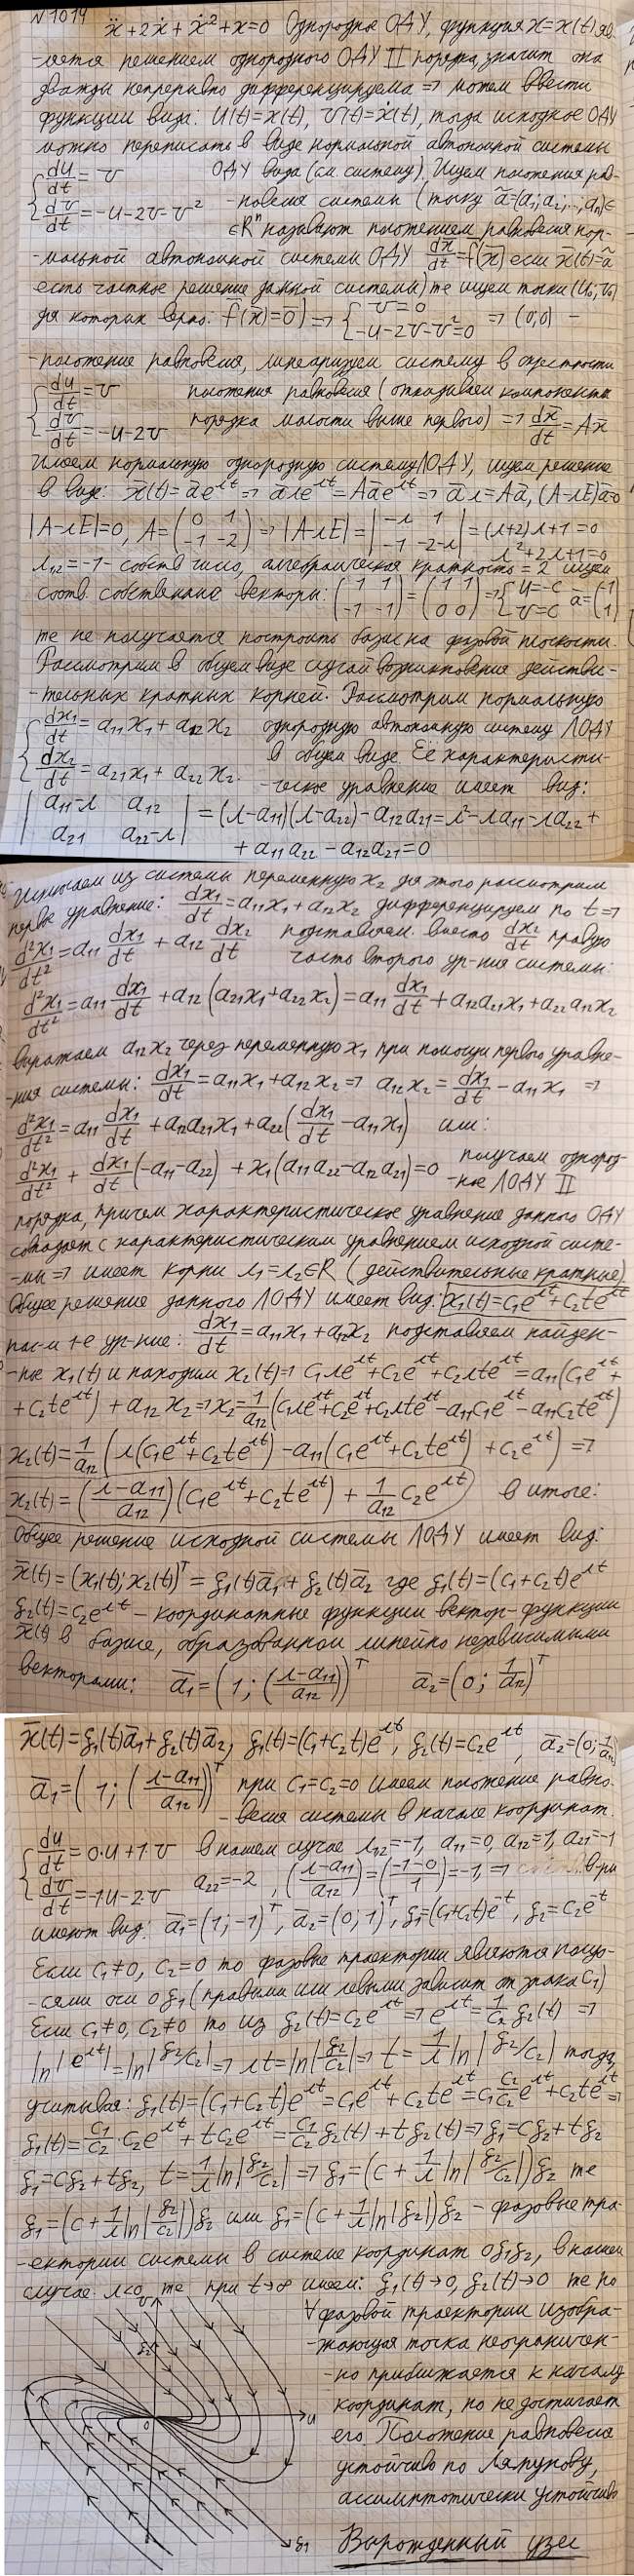 N 1019 ẍ+2ẋ+ẋ²+x=0 Однородное ОДУ, функция x=x(t) яв-
-ляется решением однородного ОДУ II порядка, значит она
дважды непрерывно дифференцируема => можем ввести
функции вида: U(t)=x(t), V(t)=ẋ(t), тогда исходное ОДУ
можно переписать в виде нормальной автономной системы
{du/dt=v ОДУ вида (см систему). Ищем положения рав-
{dv/dt=-u-2v-v² -новесия системы (точку ã=(a₁;a₂;...,aₙ)∈
∈Rⁿ называют положением равновесия нор-
-мальной автономной системы ОДУ dx̄/dt=f̄(x̄) если x̄(t)=ã
есть частное решение данной системы) те ищем точки (u₀;v₀)
для которых верно: f̄(x̄)=0̄) => {v=0 {-u-2v-v²=0 => (0;0) -
-положение равновесия, линеаризуем систему в окрестности
{du/dt=v положения равновесия (отбрасываем компоненты
{dv/dt=-u-2v порядка малости выше первого) => dx̄/dt=Ax̄
Имеем нормальную однородную систему ЛОДУ, ищем решение
в виде: x̄(t)=āe^λt => āλe^λt=Aāe^λt => āλ=Aā, (A-λE)ā=0
|A-λE|=0, A=(0 1; -1 -2) => |A-λE|=|-λ 1; -1 -2-λ|=(λ+2)λ+1=0
λ²+2λ+1=0
λ₁,₂=-1 - собств число, алгебраическая кратность = 2 ищем
соотв. собственные векторы: (1 1; -1 -1)=(1 1; 0 0) => {u=-c {v=c ā=(-1; 1)
те не получается построить базис на фазовой плоскости.
Рассмотрим в общем виде случай возникновения действи-
-тельных кратных корней. Рассмотрим нормальную
{dx₁/dt=a₁₁x₁+a₁₂x₂ однородную автономную систему ЛОДУ
{dx₂/dt=a₂₁x₁+a₂₂x₂. в общем виде. Её характеристи-
-ческое уравнение имеет вид:
|a₁₁-λ a₁₂; a₂₁ a₂₂-λ|=(λ-a₁₁)(λ-a₂₂)-a₁₂a₂₁=λ²-λa₁₁-λa₂₂+
+a₁₁a₂₂-a₁₂a₂₁=0
Исключаем из системы переменную x₂ для этого рассмотрим
первое уравнение: dx₁/dt=a₁₁x₁+a₁₂x₂ дифференцируем по t =>
d²x₁/dt²=a₁₁ dx₁/dt + a₁₂ dx₂/dt подставляем вместо dx₂/dt правую
часть второго ур-ния системы:
d²x₁/dt²=a₁₁ dx₁/dt + a₁₂(a₂₁x₁+a₂₂x₂)=a₁₁ dx₁/dt + a₁₂a₂₁x₁+a₂₂a₁₂x₂
выражаем a₁₂x₂ через переменную x₁ при помощи первого уравне-
-ния системы: dx₁/dt=a₁₁x₁+a₁₂x₂ => a₁₂x₂=dx₁/dt-a₁₁x₁ =>
d²x₁/dt²=a₁₁ dx₁/dt + a₁₂a₂₁x₁+a₂₂(dx₁/dt-a₁₁x₁) или:
d²x₁/dt² + dx₁/dt(-a₁₁-a₂₂) + x₁(a₁₁a₂₂-a₁₂a₂₁)=0 получаем однород-
-ное ЛОДУ II
порядка, причем характеристическое уравнение данного ОДУ
совпадает с характеристическим уравнением исходной систе-
-мы => имеет корни λ₁=λ₂∈R (действительные кратные).
Общее решение данного ЛОДУ имеет вид: x₁(t)=c₁e^λt+c₂te^λt
рас-м 1-е ур-ние: dx₁/dt=a₁₁x₁+a₁₂x₂ подставляем найден-
-ное x₁(t) и находим x₂(t) => c₁λe^λt+c₂e^λt+c₂λte^λt=a₁₁(c₁e^λt+
+c₂te^λt)+a₁₂x₂ => x₂=1/a₁₂(c₁λe^λt+c₂e^λt+c₂λte^λt-a₁₁c₁e^λt-a₁₁c₂te^λt)
x₂(t)=1/a₁₂(λ(c₁e^λt+c₂te^λt)-a₁₁(c₁e^λt+c₂te^λt)+c₂e^λt) =>
x₂(t)=((λ-a₁₁)/a₁₂)(c₁e^λt+c₂te^λt)+1/a₁₂ c₂e^λt) в итоге:
Общее решение исходной системы ЛОДУ имеет вид:
x̄(t)=(x₁(t);x₂(t))ᵀ=ξ₁(t)ā₁+ξ₂(t)ā₂ где ξ₁(t)=(c₁+c₂t)e^λt
ξ₂(t)=c₂e^λt - координатные функции вектор-функции
x̄(t) в базисе, образованном линейно независимыми
векторами: ā₁=(1;((λ-a₁₁)/a₁₂))ᵀ ā₂=(0;1/a₁₂)ᵀ
x̄(t)=ξ₁(t)ā₁+ξ₂(t)ā₂, ξ₁(t)=(c₁+c₂t)e^λt, ξ₂(t)=c₂e^λt, ā₂=(0;1/a₁₂)
ā₁=(1;((λ-a₁₁)/a₁₂))ᵀ при c₁=c₂=0 имеем положение равно-
-весия системы в начале координат.
{du/dt=0·u+1·v в нашем случае λ₁,₂=-1, a₁₁=0, a₁₂=1, a₂₁=-1
{dv/dt=-1u-2·v a₂₂=-2, ((λ-a₁₁)/a₁₂)=((-1-0)/1)=-1, => в-ри
имеют вид: ā₁=(1;-1)ᵀ, ā₂=(0;1)ᵀ, ξ₁=(c₁+c₂t)e^-t, ξ₂=c₂e^-t
Если c₁≠0, c₂=0 то фазовые траектории являются полуо-
-сями оси Oξ₁ (правыми или левыми зависит от знака c₁)
Если c₁≠0, c₂≠0 то из ξ₂(t)=c₂e^λt => e^λt=1/c₂ ξ₂(t) =>
ln|e^λt|=ln|ξ₂/c₂| => λt=ln|ξ₂/c₂| => t=1/λ ln|ξ₂/c₂| тогда,
учитывая: ξ₁(t)=(c₁+c₂t)e^λt=c₁e^λt+c₂te^λt=c₁ c₂/c₂ e^λt+c₂te^λt =>
ξ₁(t)=c₁/c₂·c₂e^λt+tc₂e^λt=c₁/c₂ ξ₂(t)+tξ₂(t) => ξ₁=cξ₂+tξ₂
ξ₁=cξ₂+tξ₂, t=1/λ ln|ξ₂/c₂| => ξ₁=(c+1/λ ln|ξ₂/c₂|)ξ₂ те
ξ₁=(c+1/λ ln|ξ₂/c₂|)ξ₂ или ξ₁=(c+1/λ ln|ξ₂|)ξ₂ - фазовые тра-
-ектории системы в системе координат Oξ₁ξ₂, в нашем
случае λ<0, те при t→∞ имеем: ξ₁(t)→0, ξ₂(t)→0 те по
∀ фазовой траектории изобра-
-жающая точка неограничен-
-но приближается к началу
координат, но не достигает
его. Положение равновесия
устойчиво по Ляпунову,
ассимптотически устойчиво
Вырожденный узел
v
ξ₂
0
u
ξ₁